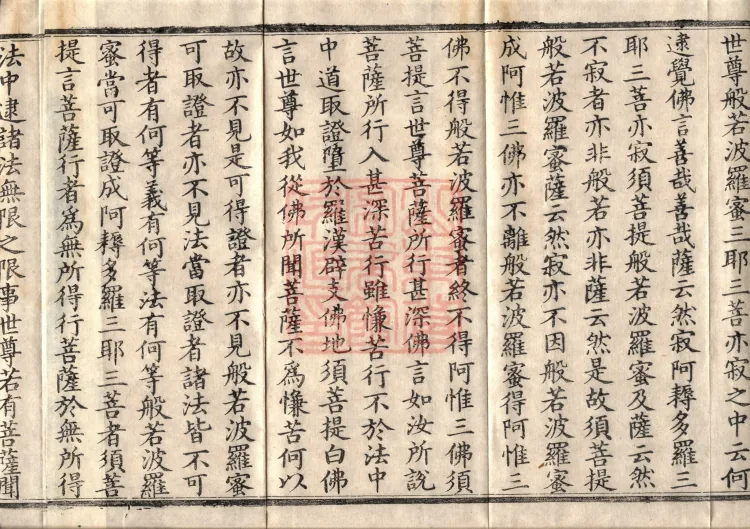 世尊般若波羅蜜三耶三菩亦寂之中云何
逮覺佛言善哉善哉薩云然寂阿耨多羅三
耶三菩亦寂須菩提般若波羅蜜及薩云然
不寂者亦非般若亦非薩云然是故須菩提
般若波羅蜜薩云然寂亦不因般若波羅蜜
成阿惟三佛亦不離般若波羅蜜得阿惟三
佛不得般若波羅蜜者終不得阿惟三佛須
菩提言世尊菩薩所行甚深佛言如汝所說
菩薩所行入甚深苦行雖慊苦行不於法中
中道取證墮於羅漢辟支佛地須菩提白佛
言世尊如我從佛所聞菩薩不為慊苦何以
故亦不見是可得證者亦不見般若波羅蜜
可取證者亦不見法當取證者諸法皆不可
得者有何等義有何等法有何等般若波羅
蜜當可取證成阿耨多羅三耶三菩者須菩
提言菩薩行者為無所得行菩薩於無所得
法中逮諸法無限之限事世尊若有菩薩聞